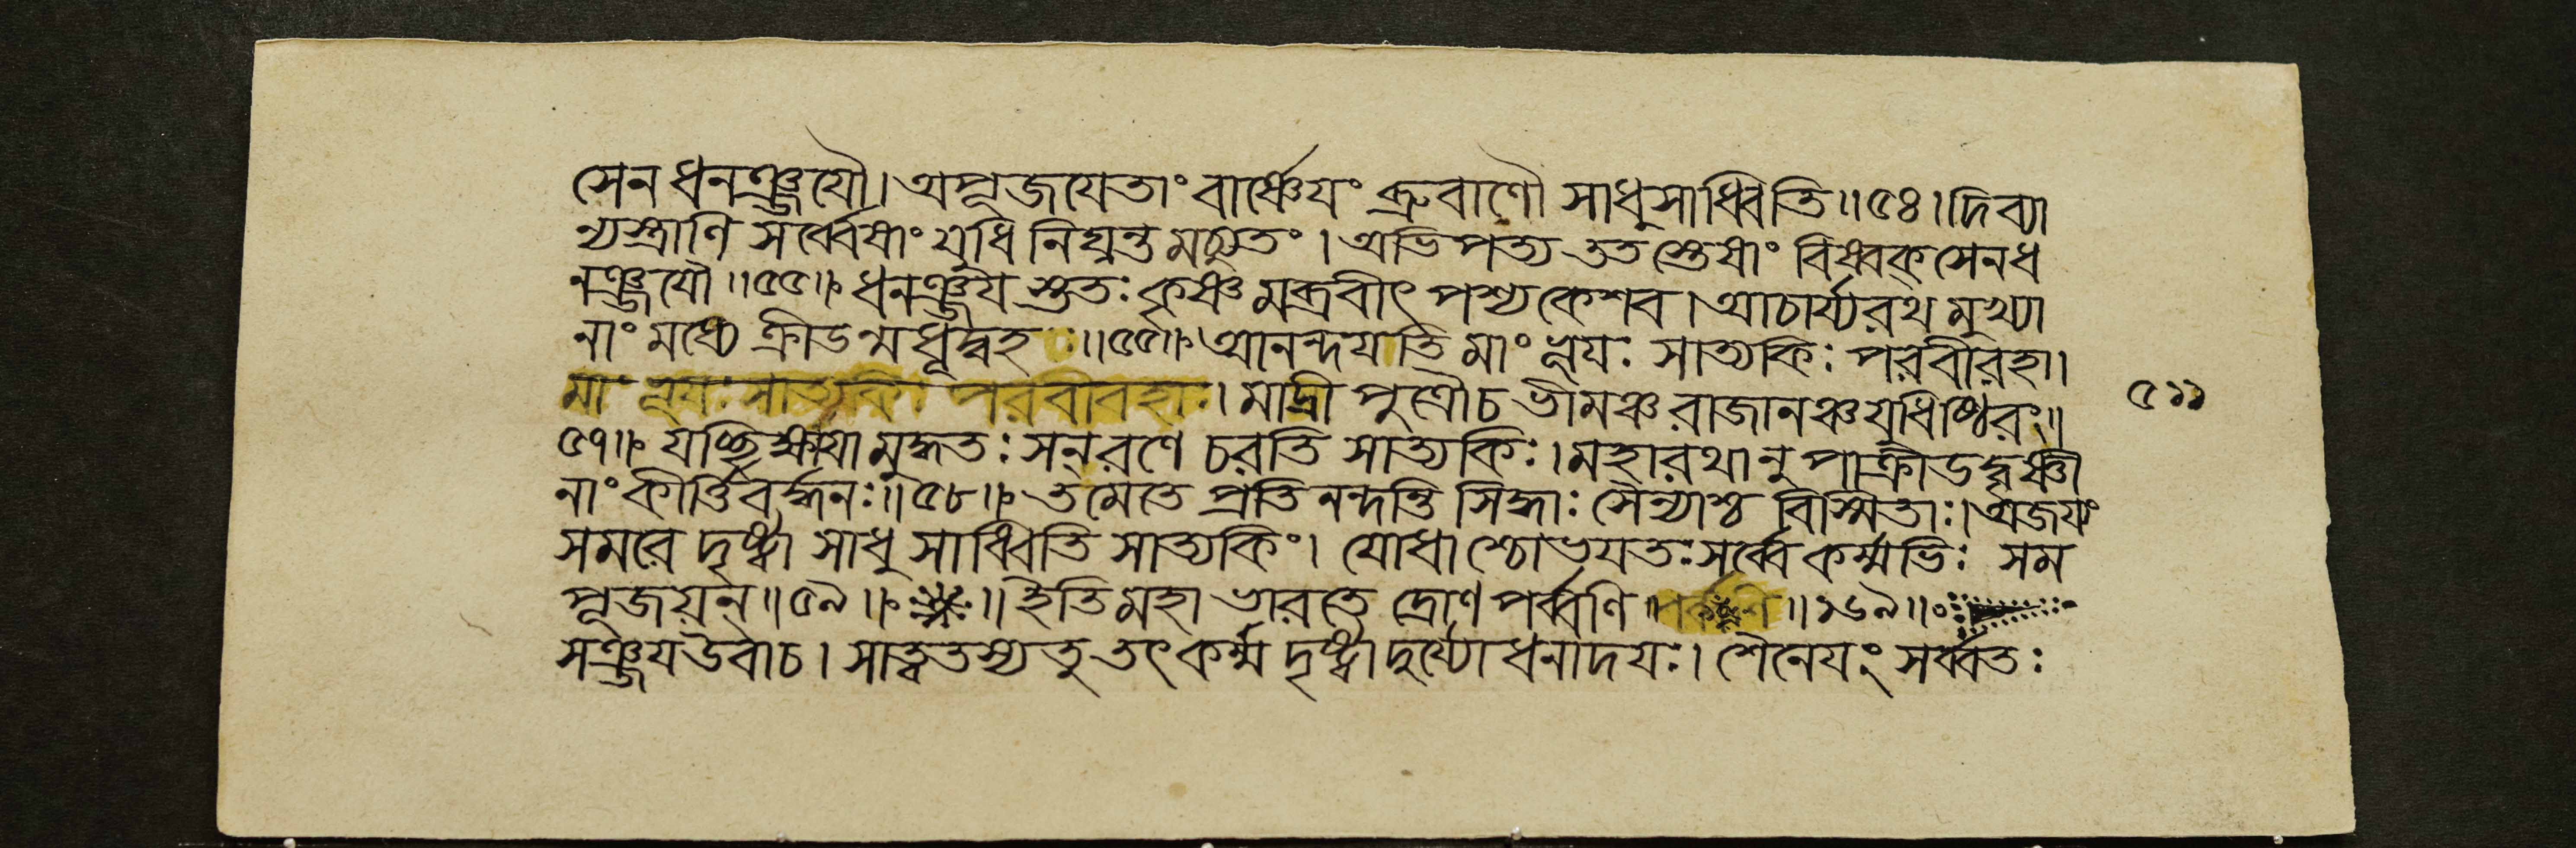 সেন ধনঞ্জযৌ। অপূজযেতাং বার্ষ্ণেযং ব্রুবাণৌ সাধুসাধ্বিতি॥৫৪। দিব্যা
ন্যস্ত্রাণি সর্ব্বেষাং যুধি নিঘ্নন্তমচ্যুতং। অভিপত্য ততস্তেষাং বিষ্বক্সেনধ
নঞ্জযৌ॥৫৫॥ ধনঞ্জয স্ততঃ কৃষ্ণমব্রবীৎ পশ্য কেশব। আচার্য্যরথমুখ্যা
নাং মধ্যে ক্রীডন্মধূদ্বহঃ॥৫৬॥ আনন্দযতি মাং ভূযঃ সাত্যকিঃ পরবীরহা।
মাং ভূযঃ সাত্যকিঃ পরবীরহা। মাদ্রীপুত্রৌচ ভীমঞ্চ রাজানঞ্চ যুধিষ্ঠিরং॥
৫১১
৫৭॥ যচ্ছিক্ষাযামুদ্ধতঃ সন্ রণে চরতি সাত্যকিঃ। মহারথানুপাক্রীডদ্বৃষ্ণী
নাং কীর্ত্তিবর্দ্ধনঃ॥৫৮॥ তমেতে প্রতিনন্দন্তি সিদ্ধাঃ সৈন্যাশ্চ বিস্মিতাঃ। অজয্যং
সমরে দৃষ্ট্বা সাধু সাধ্বিতি সাত্যকিং। যোধাশ্চোভযতঃ সর্ব্বে কর্ম্মভিঃ সম
পূজয়ন্॥৫৯॥ ॥ ইতি মহাভারতে দ্রোণপর্ব্বণি ॥১৬৯॥
সঞ্জযউবাচ। সাত্বতস্য তু তৎ কর্ম্ম দৃষ্ট্বা দুর্য্যোধনাদযঃ। শৈনেযং সর্ব্বতঃ